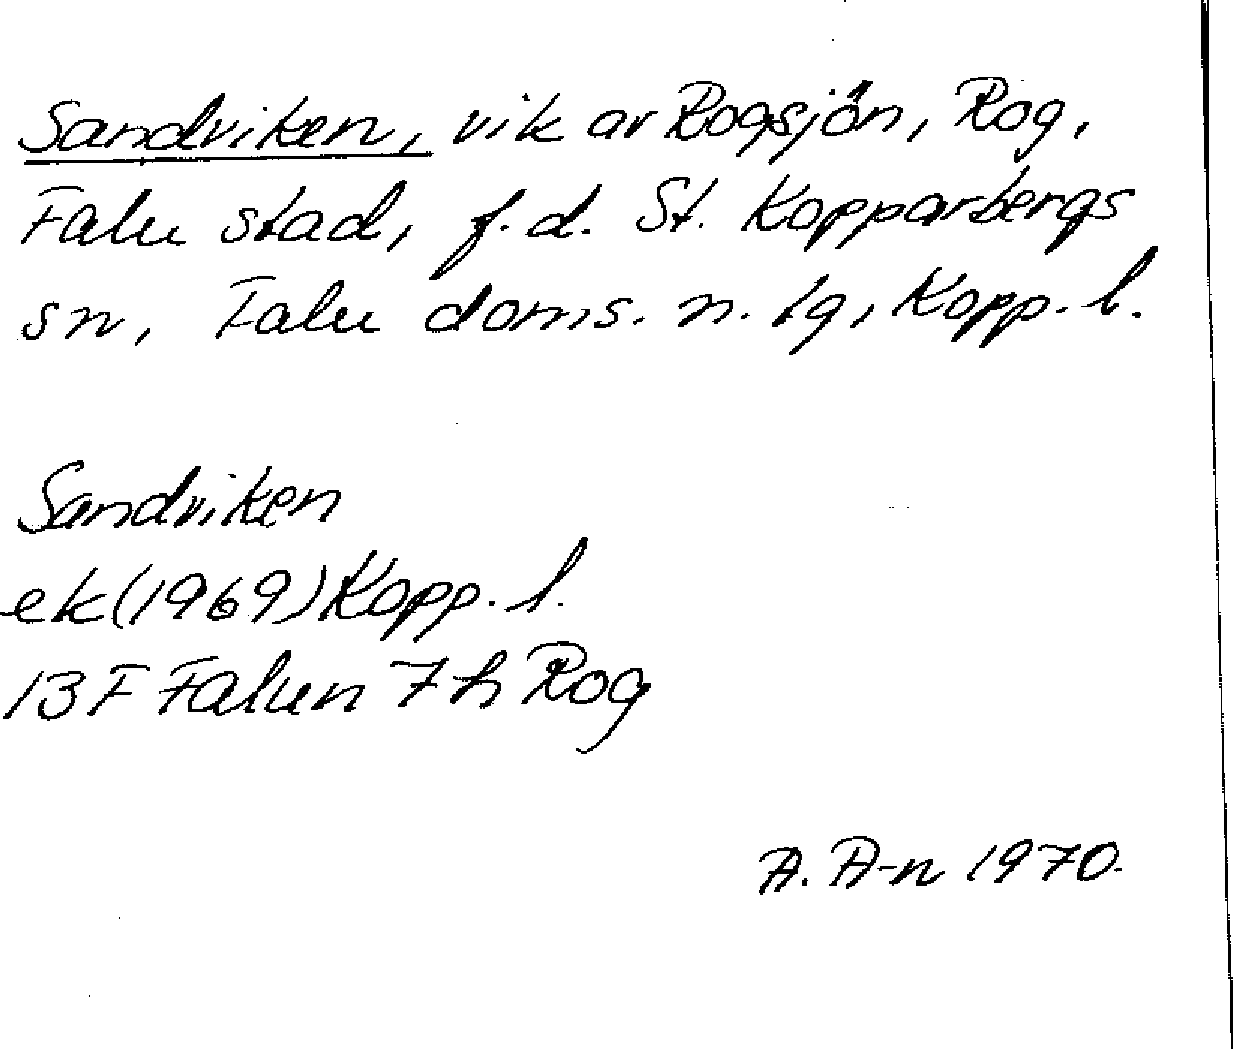 Sandviken, vik av Rogsjön, Rog,
Falu stad, f.d. St. Kopparbergs
sn, Falu doms. n. tg, Kopp. l.
Sandviken
ek(1969)Kopp. l.
13F Falun 7h Rog
A. A-n 1970.